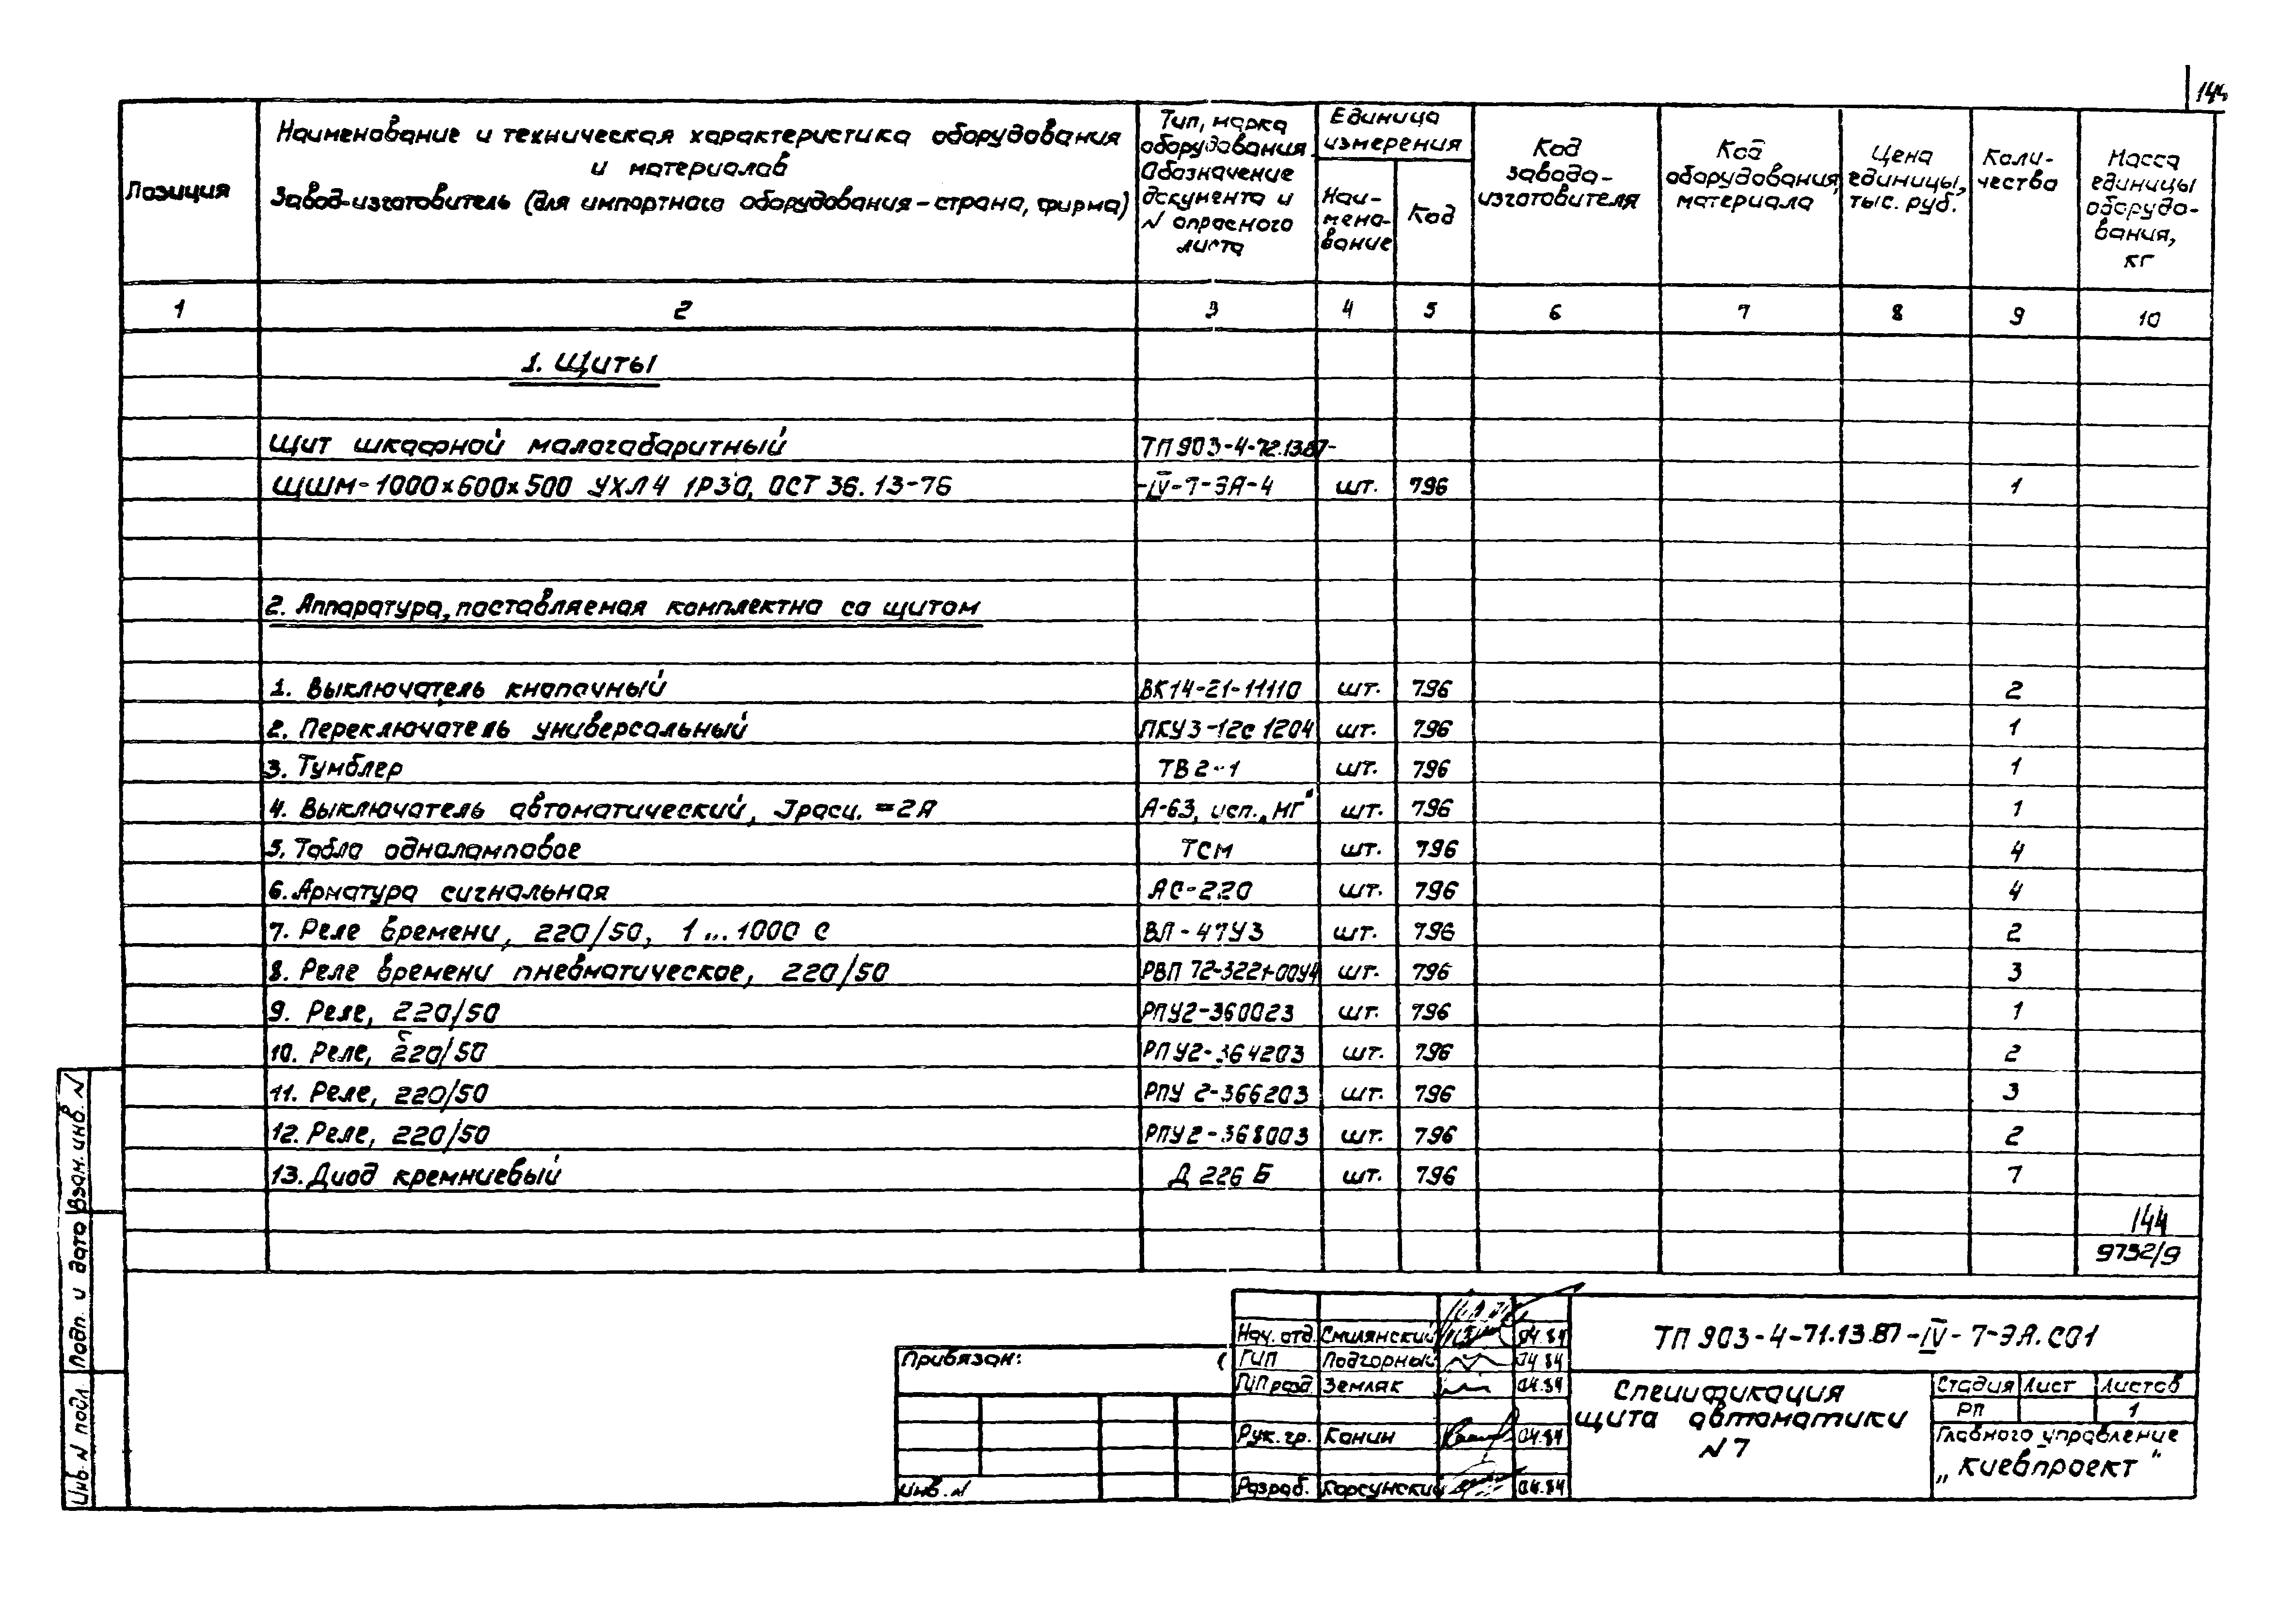 144
Позиция
Наименование и техническая характеристика оборудования
и материалов
Завод-изготовитель (для импортного оборудования - страна, фирма)
Тип, марка
оборудования
Обозначение
документа и
N опросного
листа
Единица
измерения
Наи-
мено-
вание
Код
Код
завода-
изготовителя
Код
оборудования,
материала
Цена
единицы,
тыс. руб.
Коли-
чество
Масса
единицы
оборудо-
вания,
кг
1 2 3 4 5 6 7 8 9 10
1. Щиты
Щит шкафной малогабаритный ТП 903-4-72.13.87-
ЩШМ-1000×600×500 УХЛ4 1Р30, ОСТ 36.13-76 -IV-7-ЭА-4 шт. 796 1
2. Аппаратура, поставляемая комплектно со щитом
1. Выключатель кнопочный ВК14-21-11110 шт. 796 2
2. Переключатель универсальный ПКУ3-12с 1204 шт. 796 1
3. Тумблер ТВ2-1 шт. 796 1
4. Выключатель автоматический, Iрасц. =2А А-63, исп. „МГ" шт. 796 1
5. Табло одноламповое ТСМ шт. 796 4
6. Арматура сигнальная АС-220 шт. 796 4
7. Реле времени, 220/50, 1...1000 с ВЛ-47У3 шт. 796 2
8. Реле времени пневматическое, 220/50 РВП 72-3221-00У4 шт. 796 3
9. Реле, 220/50 РПУ2-360023 шт. 796 1
10. Реле, 220/50 РПУ2-364203 шт. 796 2
11. Реле, 220/50 РПУ 2-366203 шт. 796 3
12. Реле, 220/50 РПУ2-368003 шт. 796 2
13. Диод кремниевый Д 226 Б шт. 796 7
144
9732/9
Взам. инв. N
Подп. и дата
Инв. N подл.
Привязан:
Инв. N
Нач. отд. Смилянский 04.84
ГИП Подгорный 04.84
ГИП разд Земляк 04.84
Рук. гр. Канин 04.84
Разраб. Корсунский 04.84
ТП 903-4-71.13.87-IV-7-ЭА.СО1
Спецификация
щита автоматики
N 7
Стадия Лист Листов
РП 1
Главного управление
„Киевпроект"